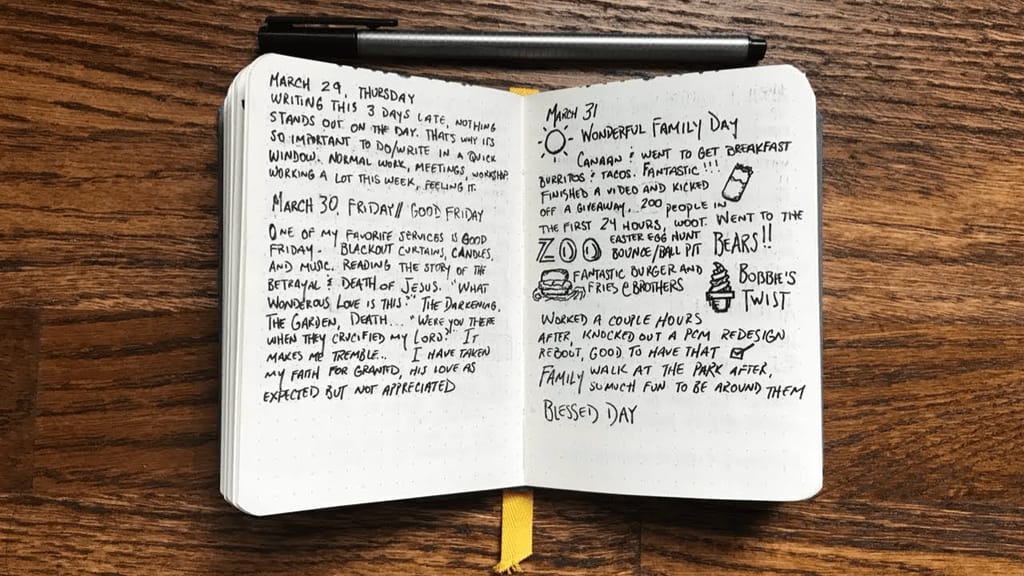 MARCH 29, THURSDAY
WRITING THIS 3 DAYS LATE, NOTHING
STANDS OUT ON THE DAY. THAT'S WHY IT'S
SO IMPORTANT TO DO/WRITE IN A QUICK
WINDOW. NORMAL WORK, MEETINGS, WORKSHOP.
WORKING A LOT THIS WEEK, FEELING IT.
MARCH 30, FRIDAY // GOOD FRIDAY
ONE OF MY FAVORITE SERVICES IS GOOD
FRIDAY. BLACKOUT CURTAINS, CANDLES,
AND MUSIC. READING THE STORY OF THE
BETRAYAL & DEATH OF JESUS. "WHAT
WONDEROUS LOVE IS THIS." THE DARKENING,
THE GARDEN, DEATH... "WERE YOU THERE
WHEN THEY CRUCIFIED MY LORD?" IT
MAKES ME TREMBLE.. I HAVE TAKEN
MY FAITH FOR GRANTED, HIS LOVE AS
EXPECTED BUT NOT APPRECIATED
MARCH 31
WONDERFUL FAMILY DAY
CANAAN & WENT TO GET BREAKFAST
BURRITOS & TACOS. FANTASTIC!!!
FINISHED A VIDEO AND KICKED
OFF A GIVEAWAY... 200 PEOPLE IN
THE FIRST 24 HOURS, WOOT. WENT TO THE
ZOO EASTER EGG HUNT BEARS!!
BOUNCE/BALL PIT
FANTASTIC BURGER AND
FRIES @ BROTHERS
BOBBIE'S
TWIST
WORKED A COUPLE HOURS
AFTER, KNOCKED OUT A PCM REDESIGN
REBOOT, GOOD TO HAVE THAT
FAMILY WALK AT THE PARK AFTER,
SO MUCH FUN TO BE AROUND THEM
BLESSED DAY